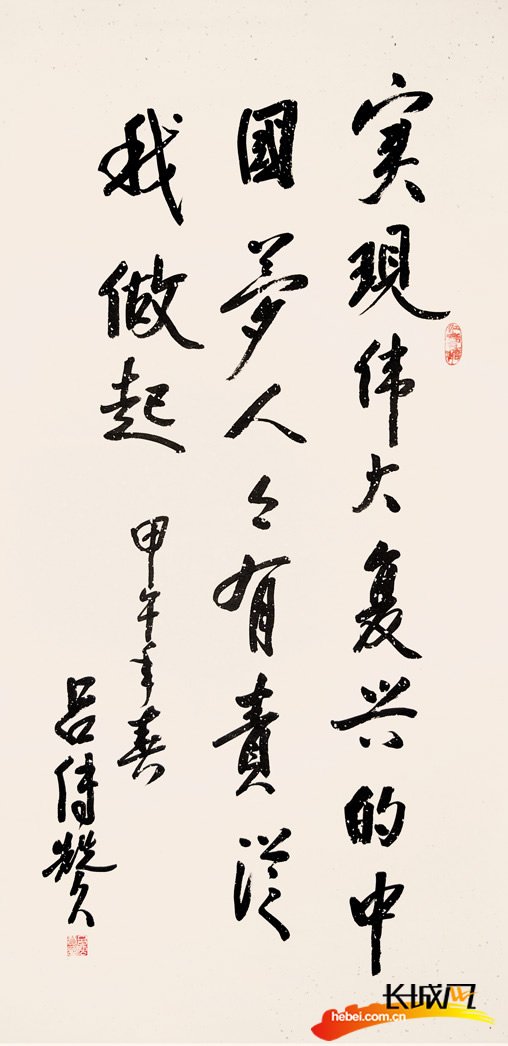 实現伟大复兴的中
國夢人々有責從
我做起
甲午年春
吕传赞
长城网
hebei.com.cn